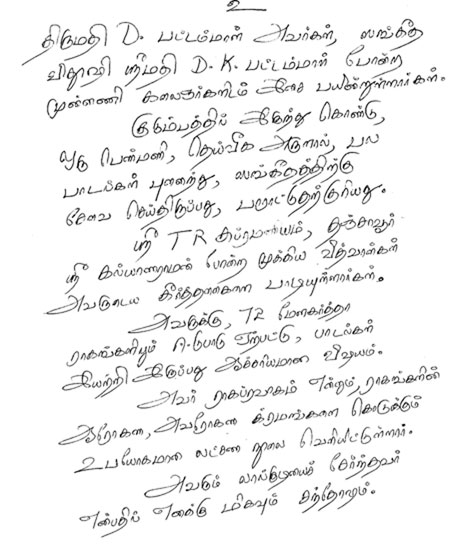 உ
திருமதி D. பட்டம்மாள் அவர்கள், ஸங்கீத
விதூஷி ஸ்ரீமதி D. K. பட்டம்மாள் போன்ற
முன்னணி கலைஞர்களிடம் இசை பயின்றுள்ளார்கள்.
குடும்பத்தில் இருந்து கொண்டு,
ஒரு பெண்மணி, தெய்வீக அருளால், பல
பாடல்கள் புனைந்து, ஸங்கீதத்திற்கு
சேவை செய்திருப்பது, பாராட்டுதற்குரியது.
ஸ்ரீ T R சுப்ரமணியம், தஞ்சாவூர்
ஸ்ரீ கல்யாணராமன் போன்ற முக்கிய வித்வான்கள்
அவருடைய கீர்த்தனைகளை பாடியுள்ளார்கள்.
அவருக்கு, 72 மேளகர்த்தா
ராகங்களிலும் ஈடுபாடு ஏற்பட்டு, பாடல்கள்
இயற்றி இருப்பது ஆச்சரியமான விஷயம்.
அவர் ராகப்ரவாகம் என்னும், ராகங்களின்
ஆரோகண, அவரோகண க்ரமங்களை கொடுக்கும்
உபயோகமான லட்சண நூலை வெளியிட்டுள்ளார்.
அவரும் லால்குடியைச் சேர்ந்தவர்
என்பதில் எனக்கு மிகவும் சந்தோஷம்.